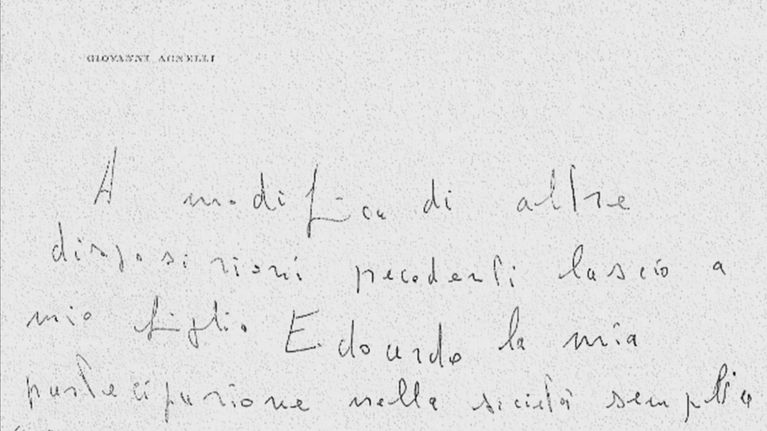 GIOVANNI AGNELLI
A modifica di altre
disposizioni precedenti lascio a
mio figlio Edoardo la mia
partecipazione nella società semplice